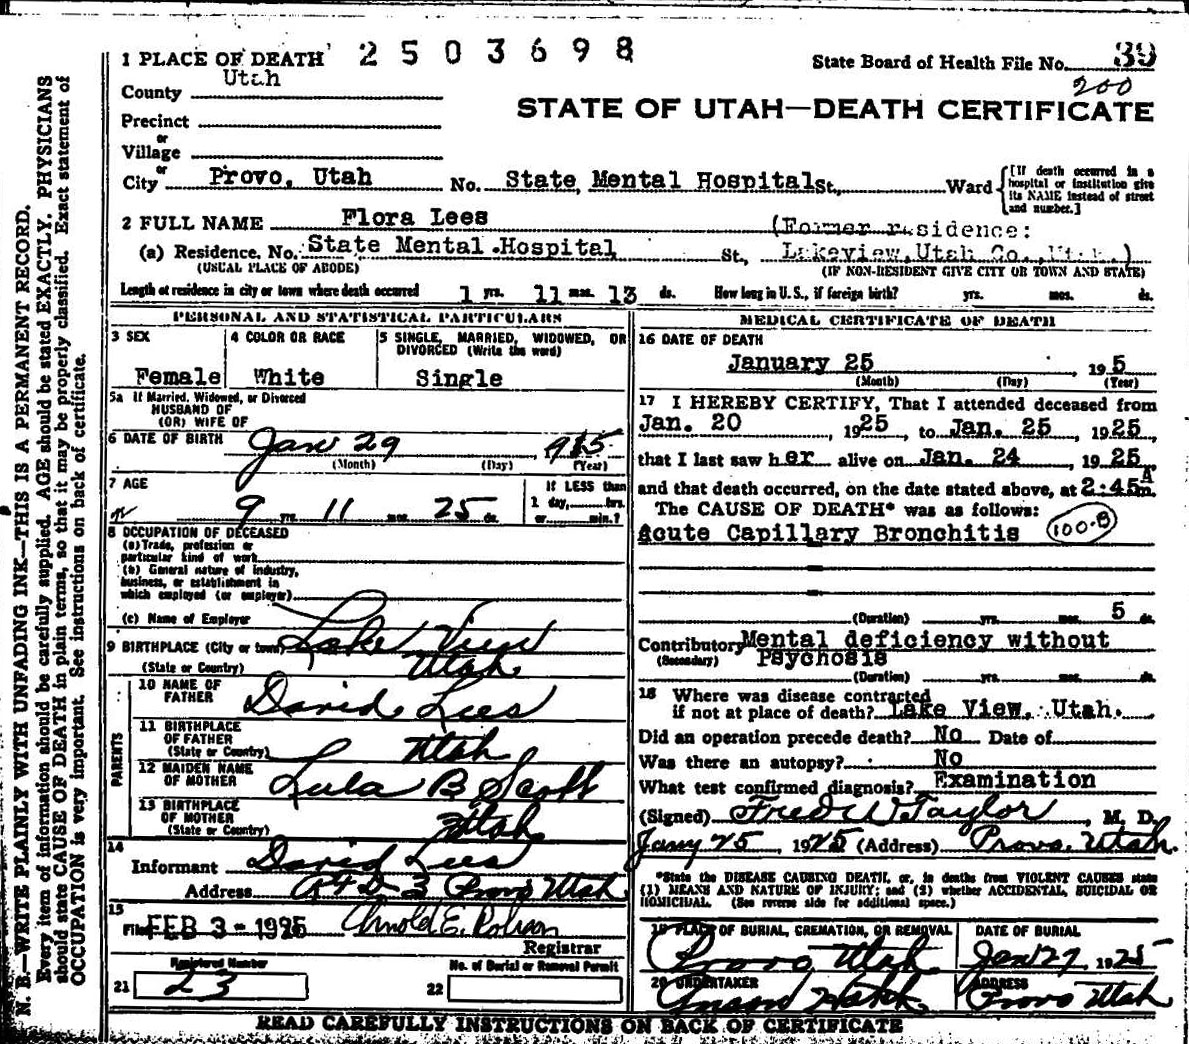 N. B.—WRITE PLAINLY WITH UNFADING INK—THIS IS A PERMANENT RECORD.
Every item of information should be carefully supplied. AGE should be stated EXACTLY. PHYSICIANS
should state CAUSE OF DEATH in plain terms, so that it may be properly classified. Exact statement of
OCCUPATION is very important. See instructions on back of certificate.
1 PLACE OF DEATH 2503698
State Board of Health File No. 39
200
County Utah
STATE OF UTAH—DEATH CERTIFICATE
Precinct
or
Village
or
City Provo, Utah No. State Mental Hospital St., Ward
[If death occurred in a
hospital or institution give
its NAME instead of street
and number.]
2 FULL NAME Flora Lees
(Former residence:
(a) Residence. No. State Mental Hospital St., Lakeview, Utah Co., Utah.)
(USUAL PLACE OF ABODE) (IF NON-RESIDENT GIVE CITY OR TOWN AND STATE)
Length of residence in city or town where death occurred 1 yrs. 11 mos. 13 ds. How long in U. S., if foreign birth? yrs. mos. ds.
PERSONAL AND STATISTICAL PARTICULARS
3 SEX 4 COLOR OR RACE 5 SINGLE, MARRIED, WIDOWED, OR
DIVORCED (Write the word)
Female White Single
5a If Married, Widowed, or Divorced
HUSBAND OF
(OR) WIFE OF
6 DATE OF BIRTH Jan 29 915
(Month) (Day) (Year)
7 AGE If LESS than
9 yrs. 11 mos. 25 ds. 1 day, hrs.
or min.?
8 OCCUPATION OF DECEASED
(a) Trade, profession or
particular kind of work
(b) General nature of industry,
business, or establishment in
which employed (or employer)
(c) Name of Employer
9 BIRTHPLACE (City or town) Lake View
(State or Country) Utah
PARENTS
10 NAME OF
FATHER David Lees
11 BIRTHPLACE
OF FATHER Utah
(State or Country)
12 MAIDEN NAME
OF MOTHER Lula B Scott
13 BIRTHPLACE
OF MOTHER Utah
(State or Country)
14
Informant David Lees
Address R F D 3 Provo Utah
15
Filed FEB 3-1925
Registrar
Registered Number No. of Burial or Removal Permit
21 23 22
MEDICAL CERTIFICATE OF DEATH
16 DATE OF DEATH
January 25 , 19 5
(Month) (Day) (Year)
17 I HEREBY CERTIFY, That I attended deceased from
Jan. 20 , 1925 , to Jan. 25 , 1925,
that I last saw her alive on Jan. 24 , 1925,
and that death occurred, on the date stated above, at 2:45 A m.
The CAUSE OF DEATH* was as follows:
Acute Capillary Bronchitis 100-B
(Duration) yrs. mos. 5 ds.
Contributory Mental deficiency without
(Secondary) Psychosis
(Duration) yrs. mos. ds.
18 Where was disease contracted
if not at place of death? Lake View, Utah.
Did an operation precede death? No Date of
Was there an autopsy? No
What test confirmed diagnosis? Examination
(Signed) Fred W Taylor , M. D.
Jany 25 , 1925 (Address) Provo, Utah
*State the DISEASE CAUSING DEATH, or, in deaths from VIOLENT CAUSES state
(1) MEANS AND NATURE OF INJURY; and (2) whether ACCIDENTAL, SUICIDAL OR
HOMICIDAL. (See reverse side for additional space.)
19 PLACE OF BURIAL, CREMATION, OR REMOVAL DATE OF BURIAL
Provo Utah Jan 27 1925
20 UNDERTAKER ADDRESS
Provo Utah
READ CAREFULLY INSTRUCTIONS ON BACK OF CERTIFICATE